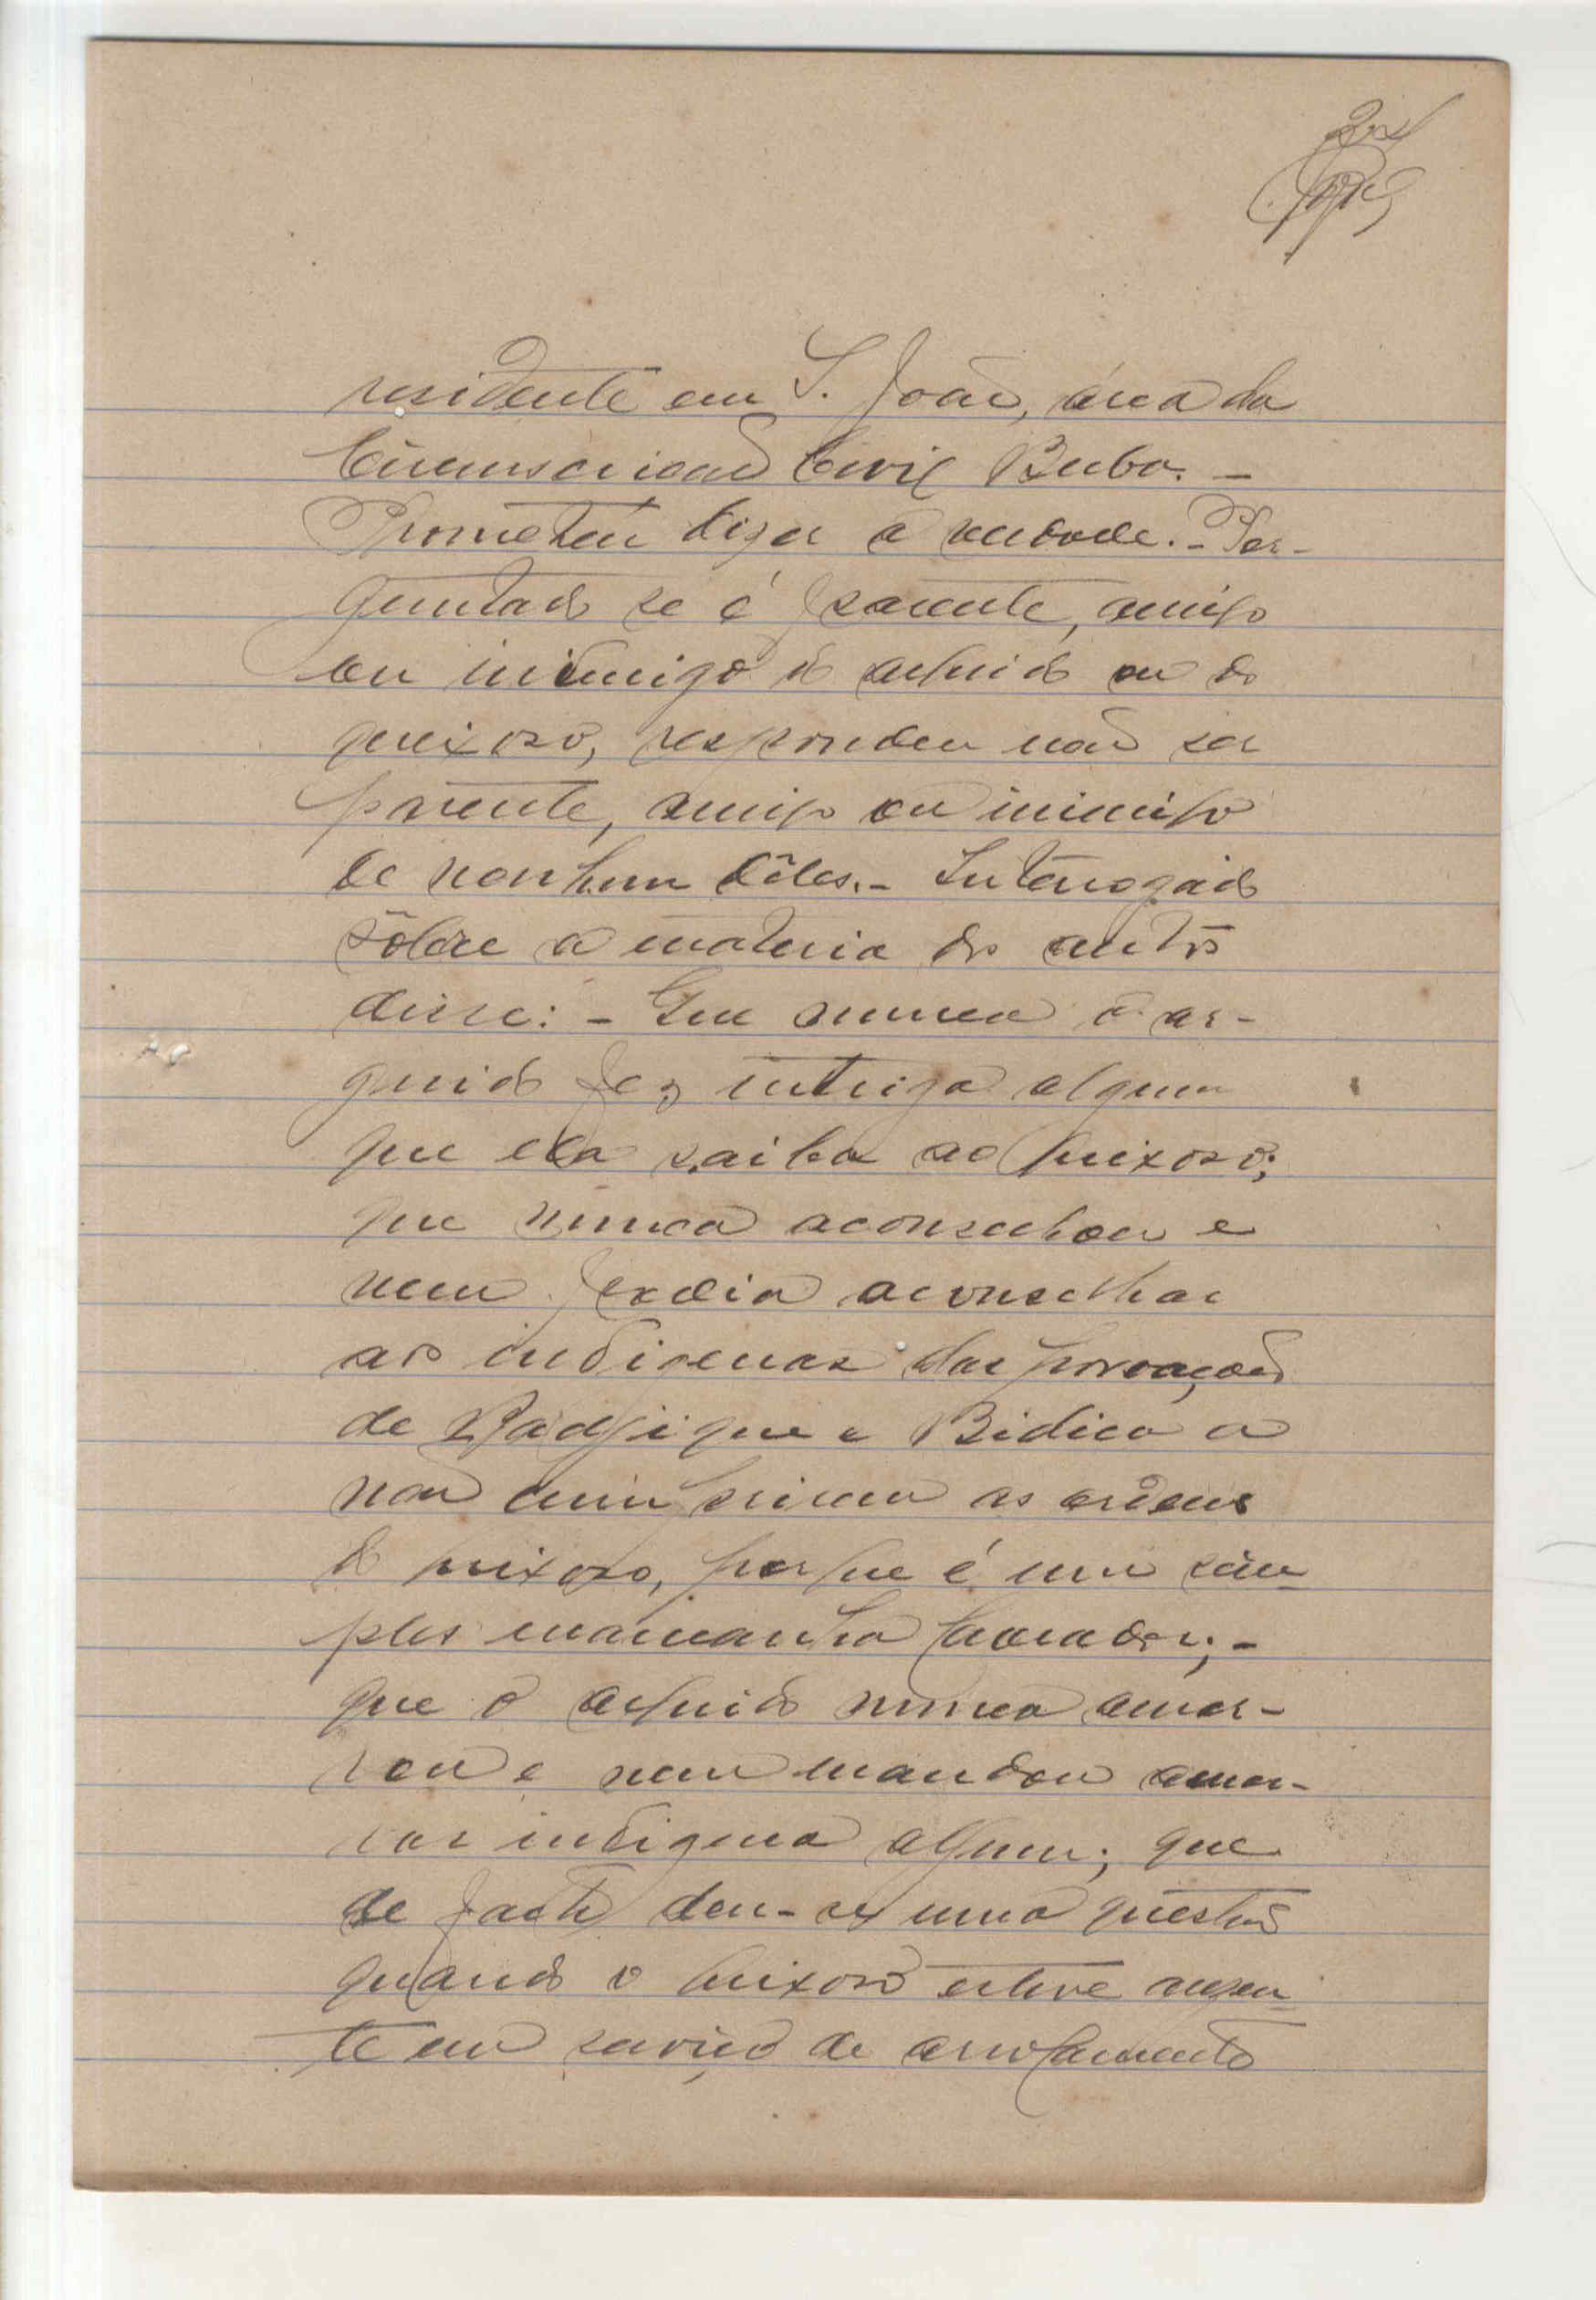 residente em S. João, área da
Circunscrição Civil Buba. -
Prometeu dizer a verdade. - Per-
guntado se é parente, amigo
ou inimigo do arguido ou do
queixoso, respondeu não ser
parente, amigo ou inimigo
de nenhum dêles. - Interrogado
sôbre a materia do autos
disse: - Que nunca o ar-
guido fez intriga alguma
que ela saiba ao queixoso;
que nunca aconselhou e
nem podia aconselhar
aos indigenas das povoações
de e Bidica a
não cumprirem as ordens
do queixoso, porque é um sim-
ples lavrador; -
que o arguido nunca amar-
rou e nem mandou amar-
rar indigena algum; que
de facto deu-se uma questão
quando o queixoso esteve ausen-
te em serviço de arrolamento